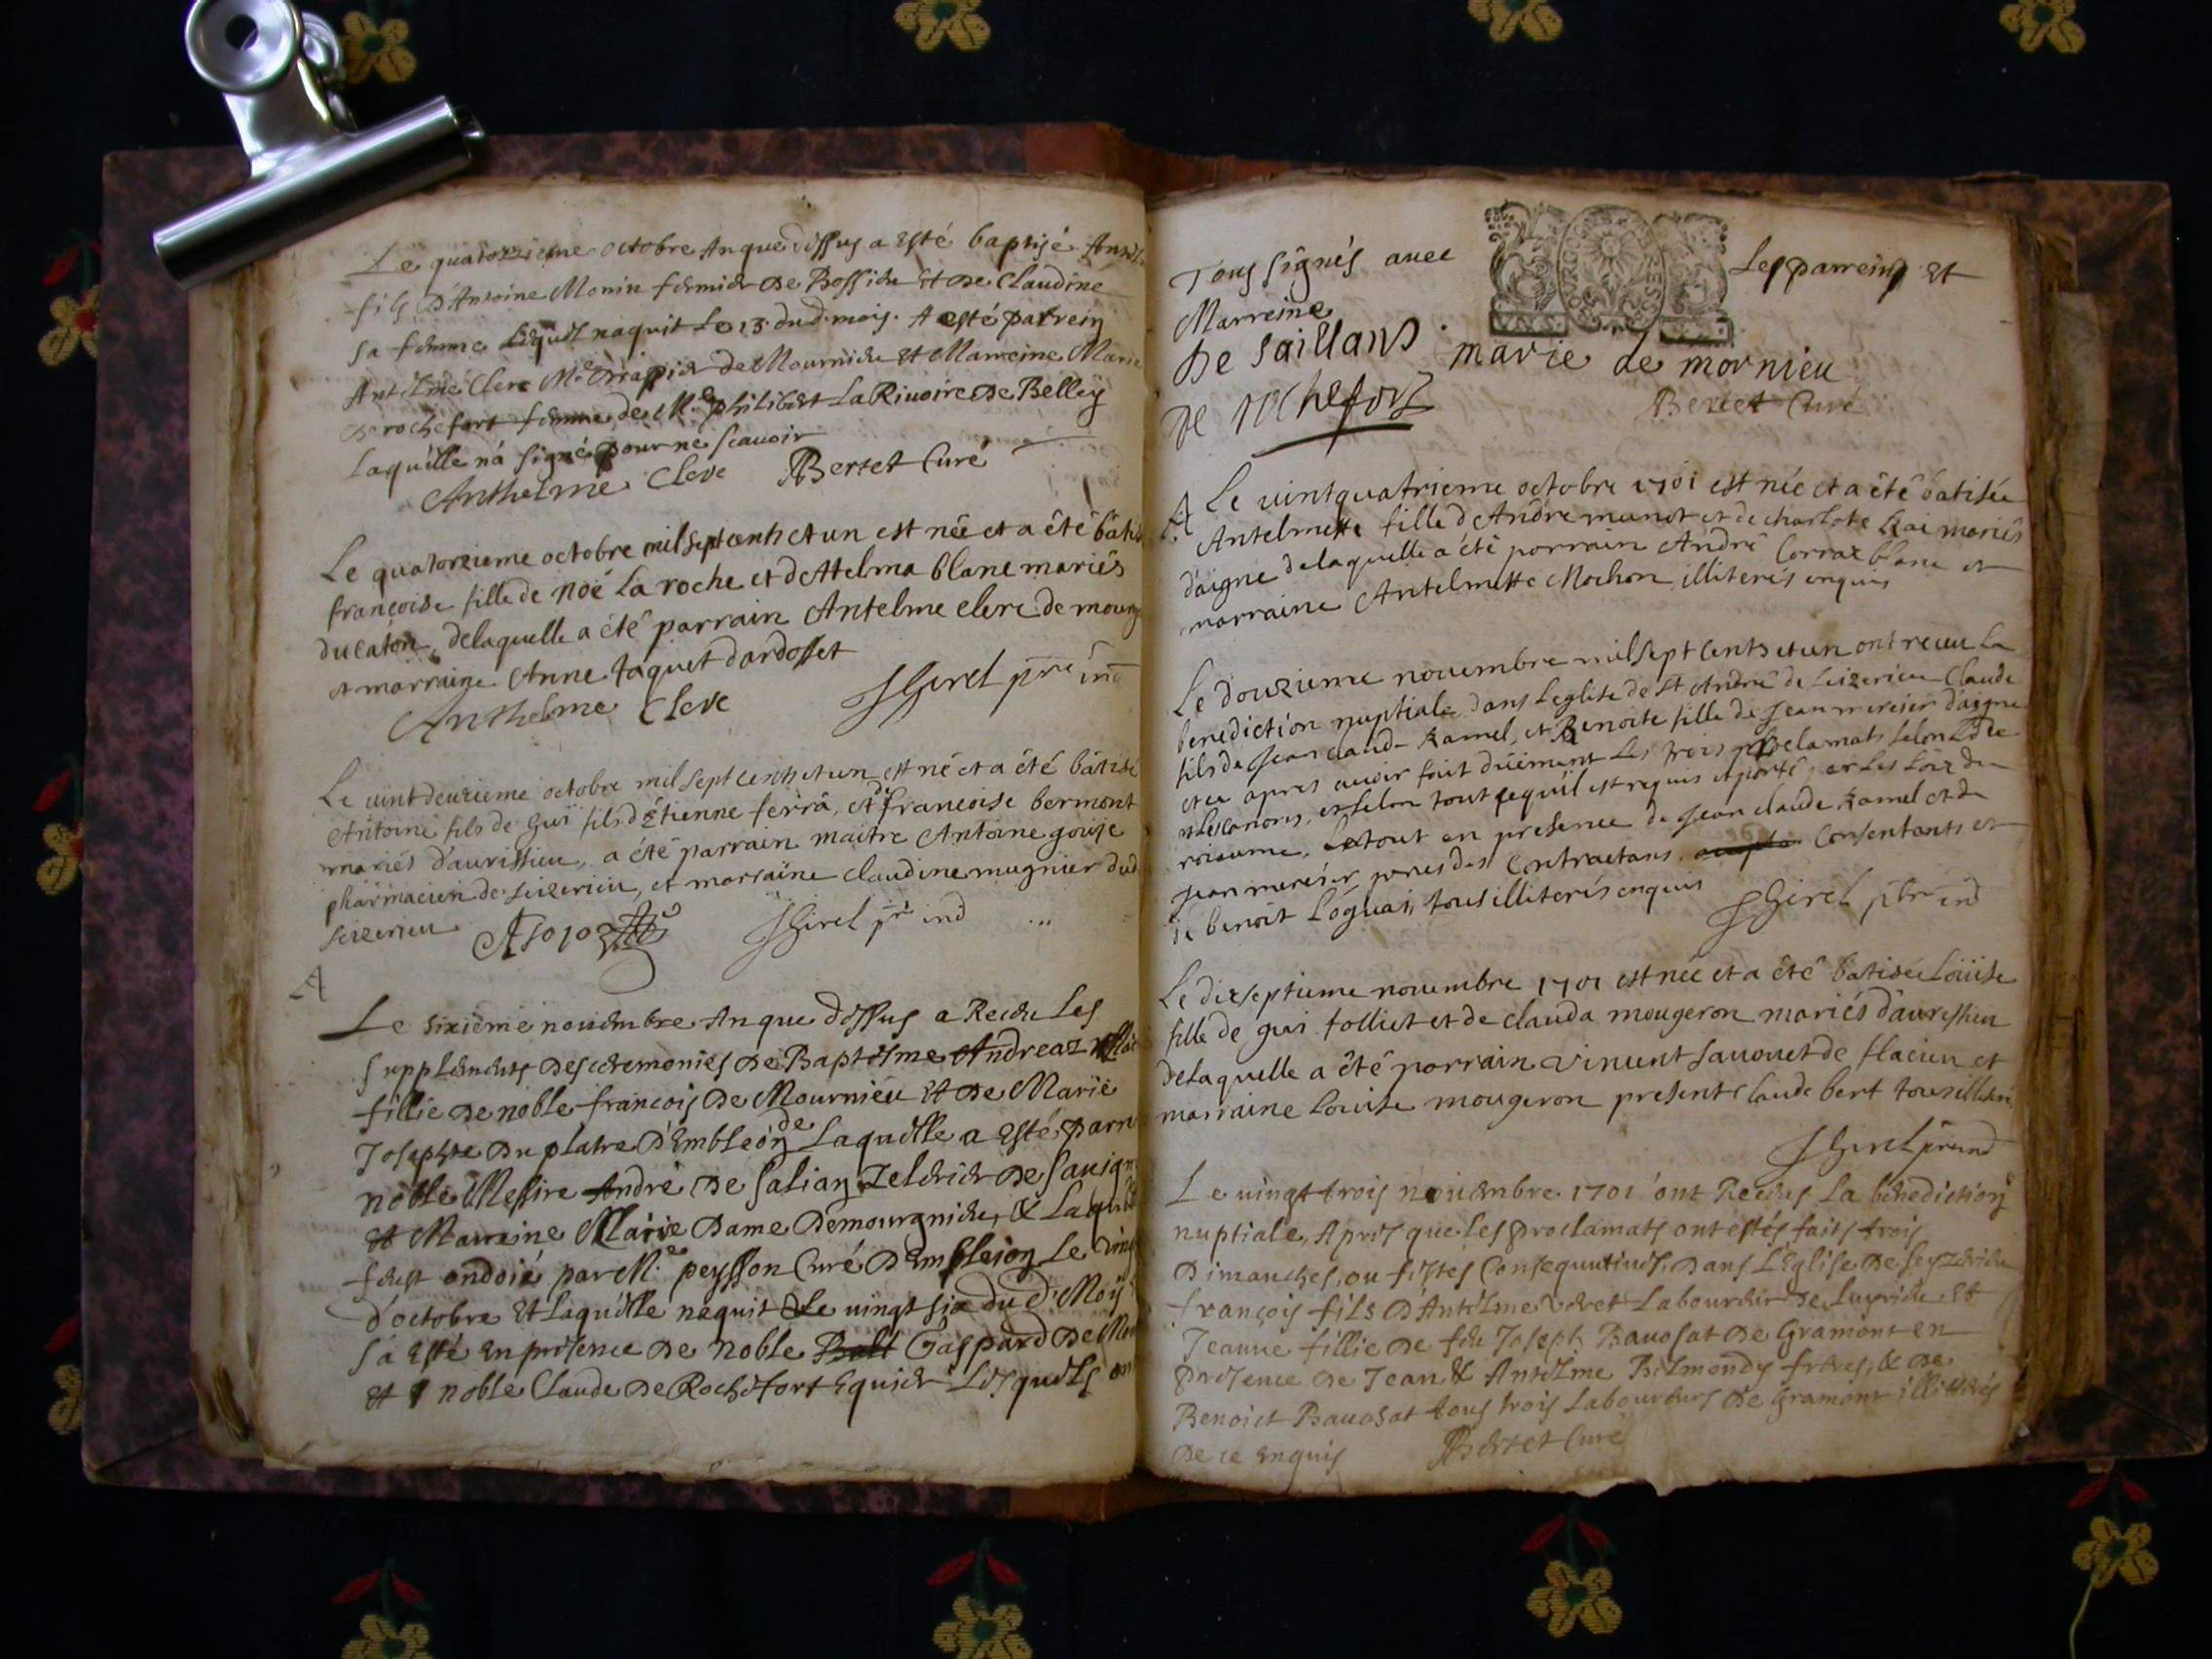 Le quatorzieme octobre An que dessus a Esté baptisé
fils D'Antoine Monin fermier De Bossieu Et De Claudine
sa femme Lequel naquit Le 13 dud. mois. A esté parrein
Antelme Clerc Me Drappier de Mournieu Et Marreine Marie
De rochefort femme de Mr philibert La Rivoire De Belley
Laquelle n'a signé pour ne scavoir
Anthelme Clerc Bertet Curé
Le quatorzieme octobre mil sept cents et un est née et a été bâti
françoise fille de Noé La roche et d'Attelma blanc mariés
du caton, delaquelle a été parrain Antelme clerc de mourg
et marraine Anne Jaquet dardosset
Anthelme Clerc JGirel pre ind
Le vint deuzieme octobre mil sept cents et un est né et a été bâtisé
Antoine fils de gui fils d'Étienne ferrâ, et de francoise bermont
mariés d'aurissieu, a été parrain maitre Antoine gouje
pharmacien de seizerieu, et marraine claudine mugnier dud
seizerieu JGirel pre ind
A
Le sixieme novembre An que dessus a Receu Les
supplements des ceremonies De Baptesme Andreaz
fillie De noble françois De Mournieu Et De Marie
Josephte Du platre D'Embleon de Laquelle a Esté parr
noble Messire André De Salian De Savign
Et Marreine Marie Dame De mourgnieu, & Laquelle
feust ondoié par Mre peysson Curé D'Embleion Le vin
d'octobre Et Laquelle naquit Le vingt six du d. Moy
sa Esté En presence De noble Gaspard De Mor
Et noble Claude De Rochefort Equier Lesquels on
Tous signés avec Les parreins Et
Marreine
De Saillans marie de mornieu
De rochefort Bertet Curé
A Le vint quatrieme octobre 1701 est née et a été batisée
Antelmette fille d'André munet et de charlote Rai mariés
d'aigne delaquelle a été parrain André Corraz blanc et
marraine Antelmette Mochon illiterés enquis
Le douzieme novembre mil sept cents et un ont receu la
benediction nuptiale dans l'eglise de St André de seizerieu Claude
fils de Jean claude Ramel, et Benoite fille de Jean mercier d'aigne
et ce apres avoir fait duëment Les trois proclamats selon
Les canons, et selon tout ce qu'il est requis et porté par Les Loix du
roiaume, Le tout en presence de Jean claude Ramel et de
Jean mercier peres des Contractans, Consentants et
de benoit Loguai, tous illiterés enquis JGirel pbre ind
Le dixseptieme novembre 1701 est née et a été batisée Loüise
fille de gui folliet et de clauda mougeron mariés d'auressieu
delaquelle a été parrain Vincent Savouet de flacieu et
marraine Louise mougeron present Claude bert tous illiteré
JGirel pre ind
Le vingt trois novembre 1701 ont Receus La benediction
nuptiale, Apres que Les proclamats ont estés faits trois
Dimanches, ou festes Consequutives, Dans L'Eglise De Seyzerieu
François fils D'Antelme Veret Laboureur De Luyrieu Et
Jeanne fillie De feu Joseph Bavosat De Gramont en
presence De Jean & Antelme Belmondy freres, & De
Benoict Bavosat tous trois Laboureurs De Gramont illitérés
De ce Enquis Bertet Curé